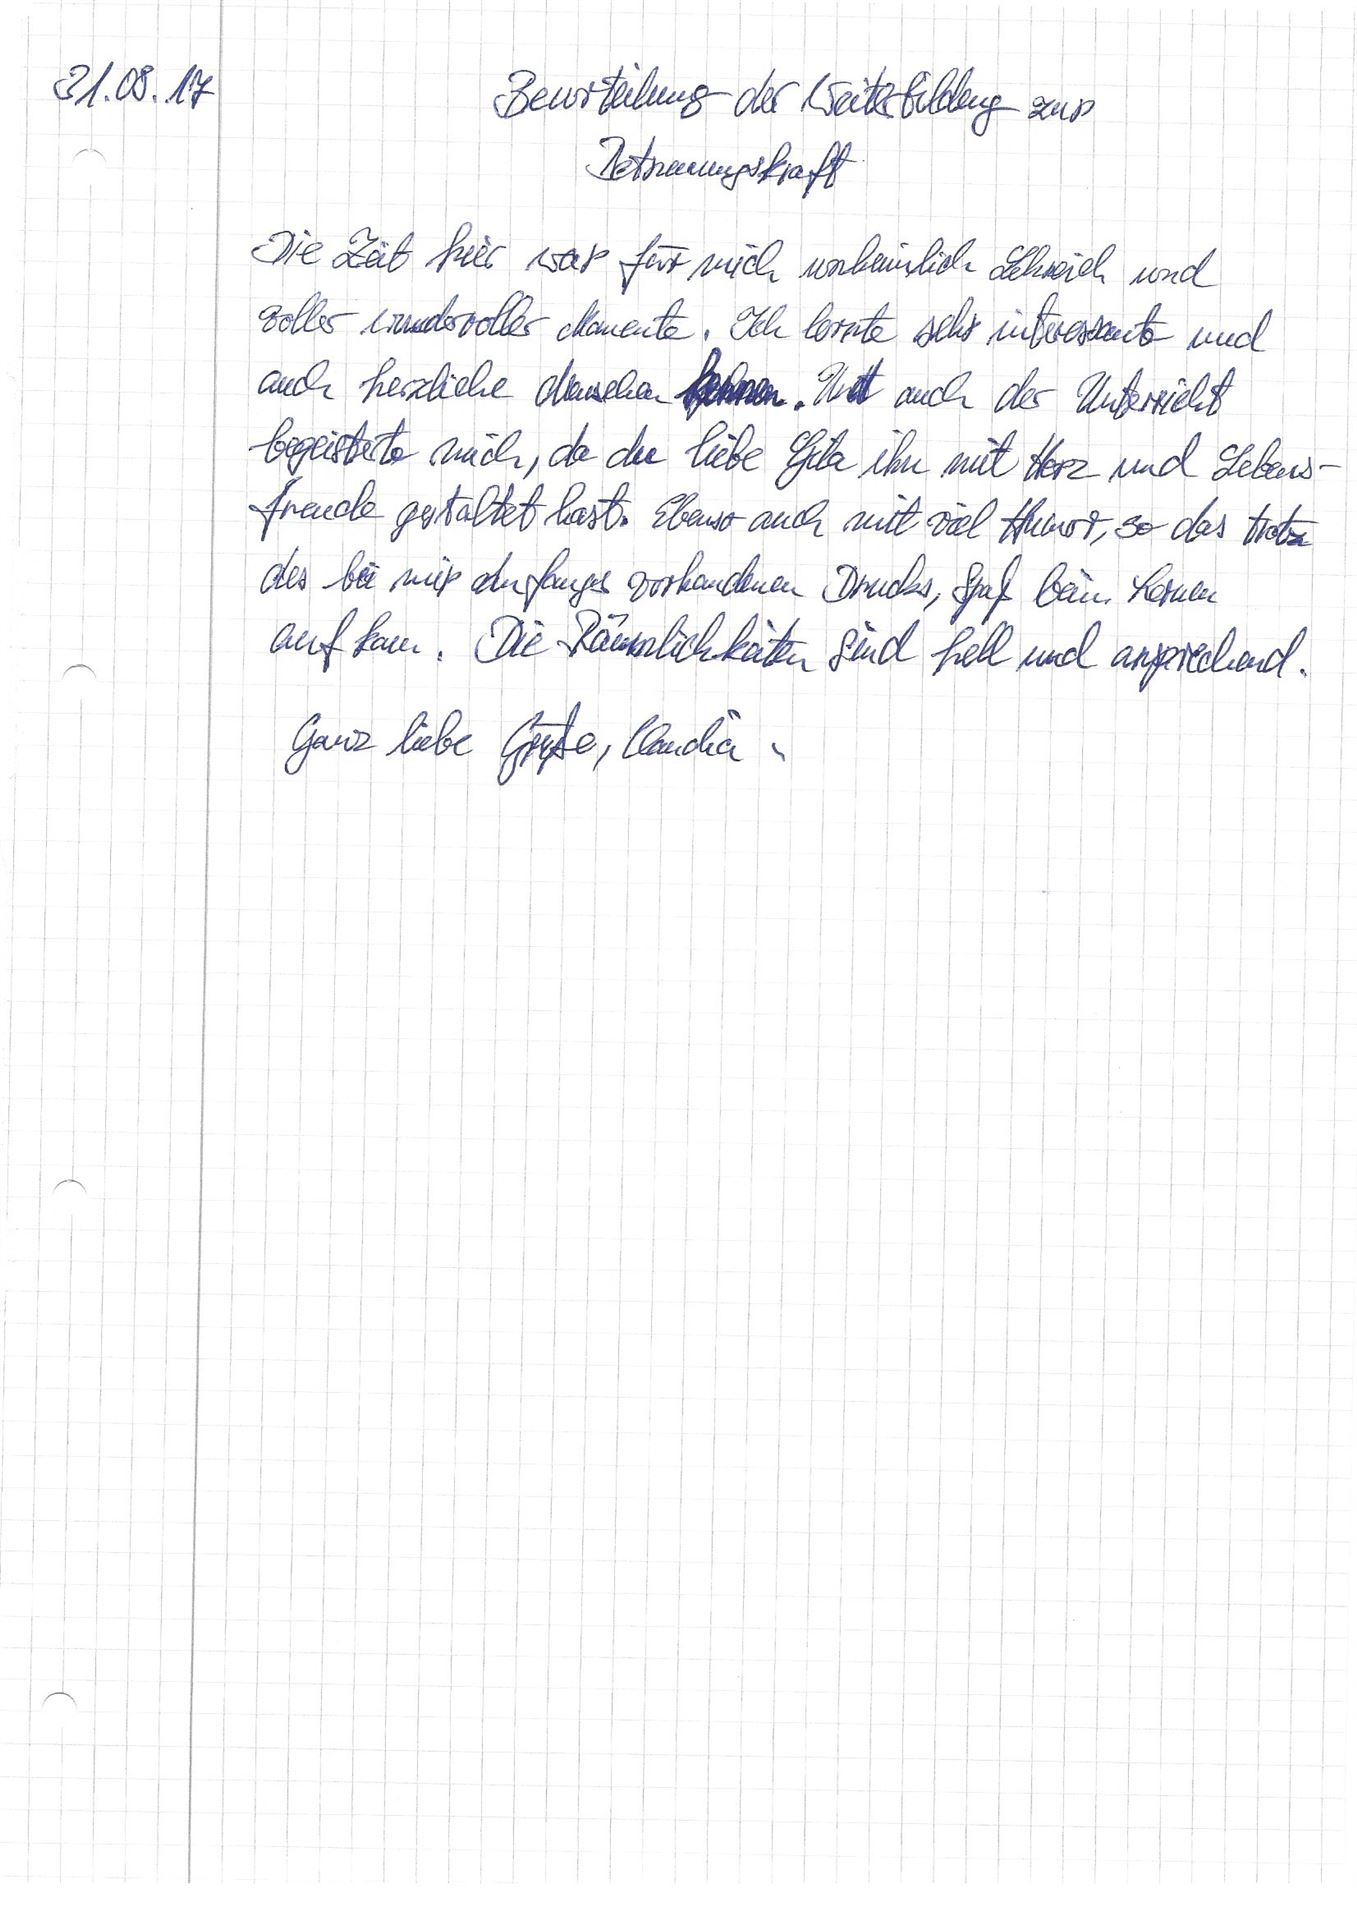 31.08.17
Beurteilung der Weiterbildung zur
Betreuungskraft
Die Zeit hier war für mich unheimlich Lehreich und
voller wundervoller Momente. Ich lernte sehr interessante und
auch herzliche Menschen kennen. Und auch der Unterricht
begeisterte mich, da du liebe Gita ihn mit Herz und Lebens-
freude gestaltet hast. Ebenso auch mit viel Humor, so das trotz
des bei mir Anfangs vorhandenen Drucks, Spaß beim Lernen
auf kam. Die Räumlichkeiten sind hell und ansprechend.
Ganz liebe Grüße, Claudia